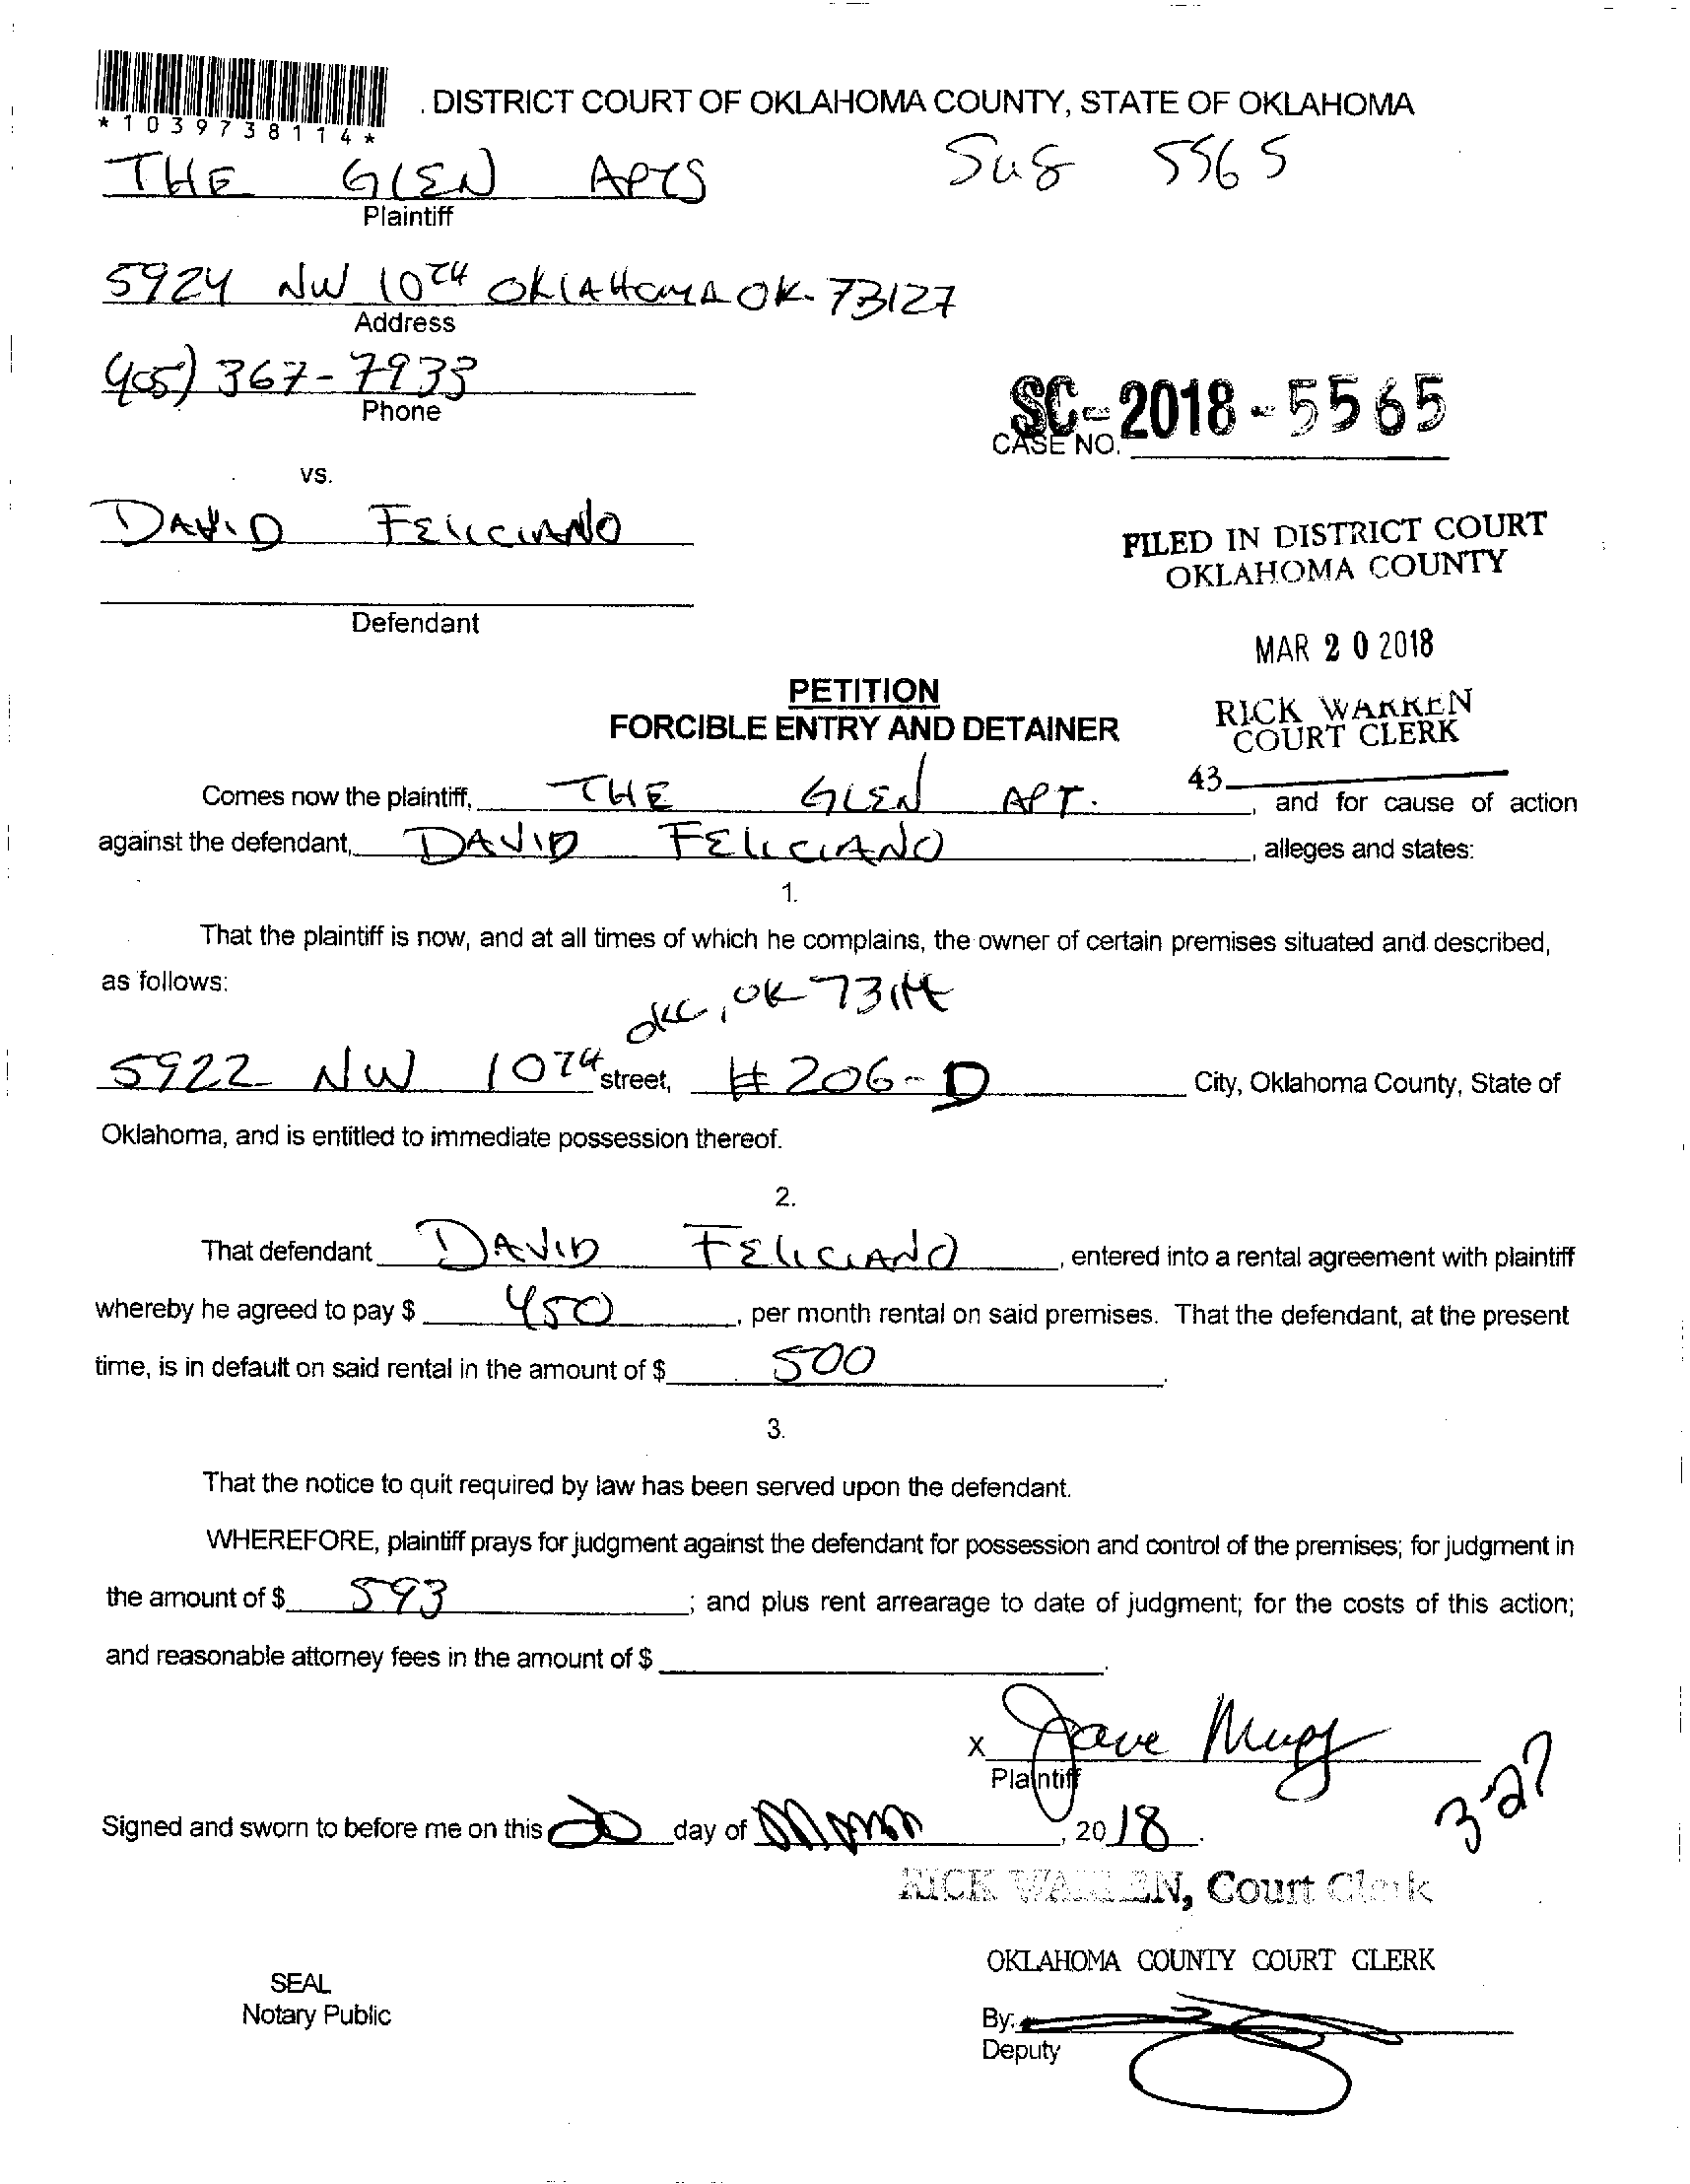 *1039738114*
DISTRICT COURT OF OKLAHOMA COUNTY, STATE OF OKLAHOMA
THE GLEN APTS
5565
Plaintiff
5924 NW 10TH OKLAHOMA OK- 73127
Address
(405) 367-7933
Phone
SC-2018-5565
CASE NO.
vs.
DAVID FELICIANO
FILED IN DISTRICT COURT
OKLAHOMA COUNTY
Defendant
MAR 20 2018
PETITION
RICK WARREN
FORCIBLE ENTRY AND DETAINER
COURT CLERK
43
Comes now the plaintiff, THE GLEN APT. , and for cause of action
against the defendant, DAVID FELICIANO , alleges and states:
1.
That the plaintiff is now, and at all times of which he complains, the owner of certain premises situated and described,
as follows:
OKC, OK
5922 NW 10TH street, #206-D City, Oklahoma County, State of
Oklahoma, and is entitled to immediate possession thereof.
2.
That defendant DAVID FELICIANO , entered into a rental agreement with plaintiff
whereby he agreed to pay $ 450 , per month rental on said premises. That the defendant, at the present
time, is in default on said rental in the amount of $ 500 .
3.
That the notice to quit required by law has been served upon the defendant.
WHEREFORE, plaintiff prays for judgment against the defendant for possession and control of the premises; for judgment in
the amount of $ 593 ; and plus rent arrearage to date of judgment; for the costs of this action;
and reasonable attorney fees in the amount of $ .
X
Plaintiff
3-27
Signed and sworn to before me on this 20 day of , 2018.
RICK WARREN, Court Clerk
OKLAHOMA COUNTY COURT CLERK
SEAL
Notary Public
By:
Deputy